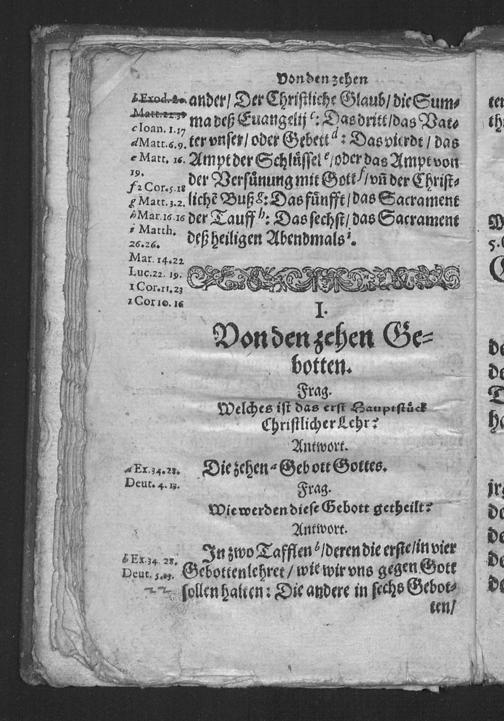 Von den zehen
b Exod. 20
Matt. 22.36
c Ioan. 1.17
d Matt. 6.9.
e Matt. 16.
19.
f 2 Cor. 5.18
g Matt. 3.2.
h Mar. 16.16
i Matth.
26.26.
Mar. 14.22
Luc. 22. 19.
1 Cor. 11.23
1 Cor 10. 16
ander/ Der Christliche Glaub/ die Sum-
ma deß Euangelij c: Das dritt/ das Vat-
ter vnser/ oder Gebett d: Das vierdt/ das
Ampt der Schlüssel e/ oder das Ampt von
der Versünung mit Gott f/ vñ der Christ-
lichẽ Buß g: Das fünfft/ das Sacrament
der Tauff h: Das sechst/ das Sacrament
deß heiligen Abendmals i.
I.
Von den zehen Ge-
botten.
Frag.
Welches ist das erst Hauptstück
Christlicher Lehr?
Antwort.
a Ex. 34. 28.
Deut. 4. 13.
Die zehen a Gebott Gottes.
Frag.
Wie werden diese Gebott getheilt?
Antwort.
b Ex 34. 28.
Deut. 5.
In zwo Tafflen b/ deren die erste/ in vier
Gebotten lehret/ wie wir vns gegen Gott
sollen halten: Die andere in sechs Gebot-
ten/